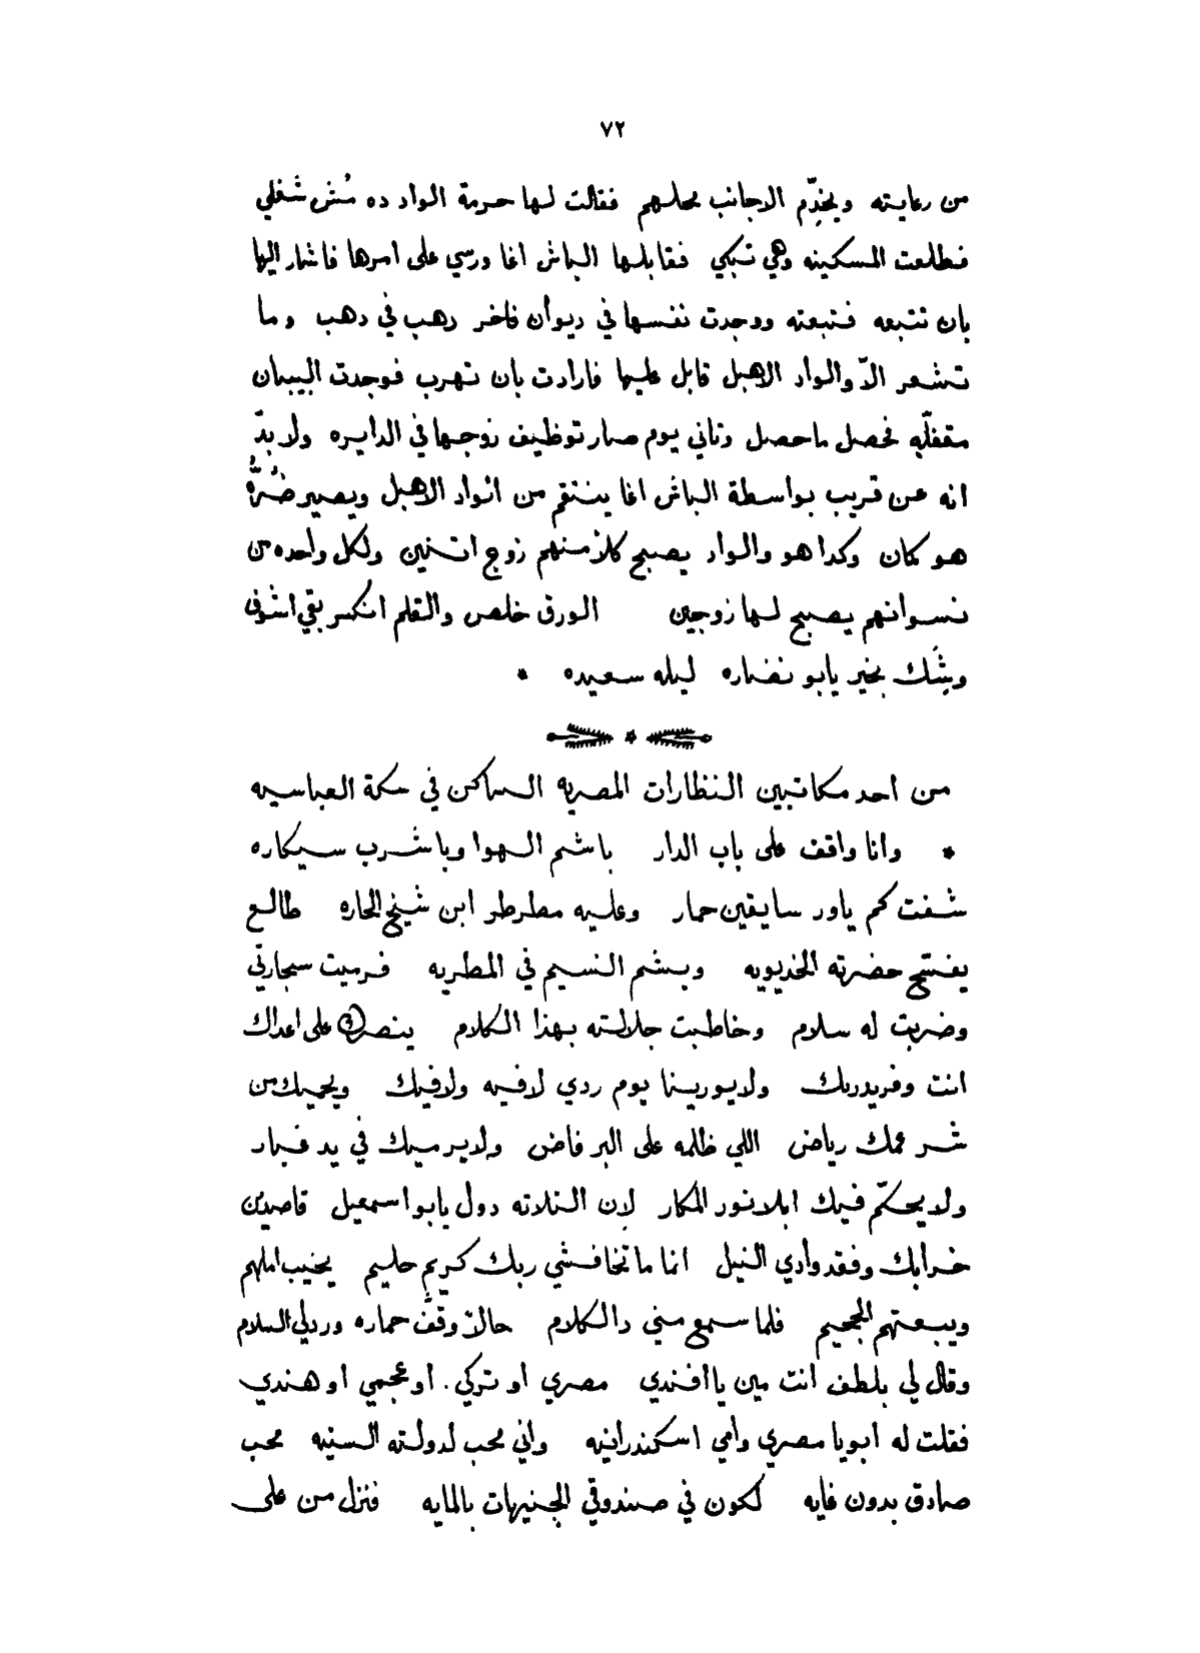 ٧٢
من رعايته ويخدِّم الاجانب محلهم فقالت لها حرمة الواد ده مُش شغلي
فطلعت المسكينه وهي تبكي فقابلها الباش اغا ورسي على امرها فاشار اليها
بان تتبعه فتبعته ووجدت نفسها في ديوان فاخر دهب في دهب وما
تشعر الاّ والواد الاهبل قابل عليها فارادت بان تهرب فوجدت البيبان
مقفلّه فحصل ماحصل وتاني يوم صار توظيف زوجها في الدايره ولابدّ
انه عن قريب بواسطة الباش اغا ينتقم من الواد الاهبل ويصير ضُرُّهُ
هو كمان وكدا هو والواد يصبح كلاً منهم زوج اتنين ولكل واحده من
نسوانهم يصبح لها زوجين الورق خلص والقلم انكسر بقي اشوف
وشَّك بخير يابو نضاره ليله سعيده *
من احد مكاتبين النظارات المصريه الساكن في سكة العباسيه
* وانا واقف على باب الدار باشم الهوا وباشرب سيكاره
شفت كم ياور سايقين حمار وعليه مطرطر ابن شيخ الحاره طالع
يفسّح حضرته الخديويه ويشم النسيم في المطريه فرميت سجارتي
وضربت له سلام وخاطبت جلالته بهذا الكلام ينصرك على اعداك
انت وفريدريك ولايورينا يوم ردي لافيه ولافيك ويحميك من
شر عمك رياض اللي ظلمه على البر فاض ولايرميك في يد غبار
ولا يحكّم فيك ابلانور المكار لان التلاته دول يابو اسمعيل قاصدين
خرابك وفقد وادي النيل انما ماتخافشي ربك كريم حليم يخيب املهم
ويبعتهم الجحيم فلما سمع مني دالكلام حالاً وقَّف حماره وردلي السلام
وقال لي بلطف انت مين ياافندي مصري او تركي. او عجمي او هندي
فقلت له ابويا مصري وامي اسكندرانيه واني محب لدولته السنيه محب
صادق بدون غايه لكون في صندوقي الجنيهات بالمايه فنزل من على